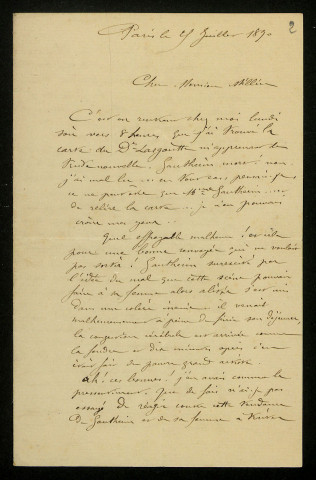 2
Paris le 25 Juillet 1890
Cher Monsieur Millien
C'est en rentrant chez moi lundi
soir vers 8 heures que j'ai trouvé la
carte du Dr Lasgoutte m'apprenant la
triste nouvelle. Gautherin mort! non
j'ai mal lu ... en tous cas pensai-je
ce ne peut être que Mme Gautherin ... et
de relire la carte ... je n'en pouvais
croire mes yeux ..
Quel effroyable malheur! est-ce
pour une bonne renvoyée qui ne voulait
pas sortir! Gautherin surexcité par
l'idée du mal que cette scène pouvait
faire à sa femme alors alitée s'est mis
dans une colère inouïe il venait
malheureusement à peine de finir son déjeuner,
la congestion cérébrale est arrivée comme
la foudre et dix minutes après c'en
était fait du pauvre grand artiste
Ah! ces bonnes! j'en avais comme le
pressentiment. Que de fois n'ai-je pas
essayé de réagir contre cette tendance
de Gautherin et de sa femme à